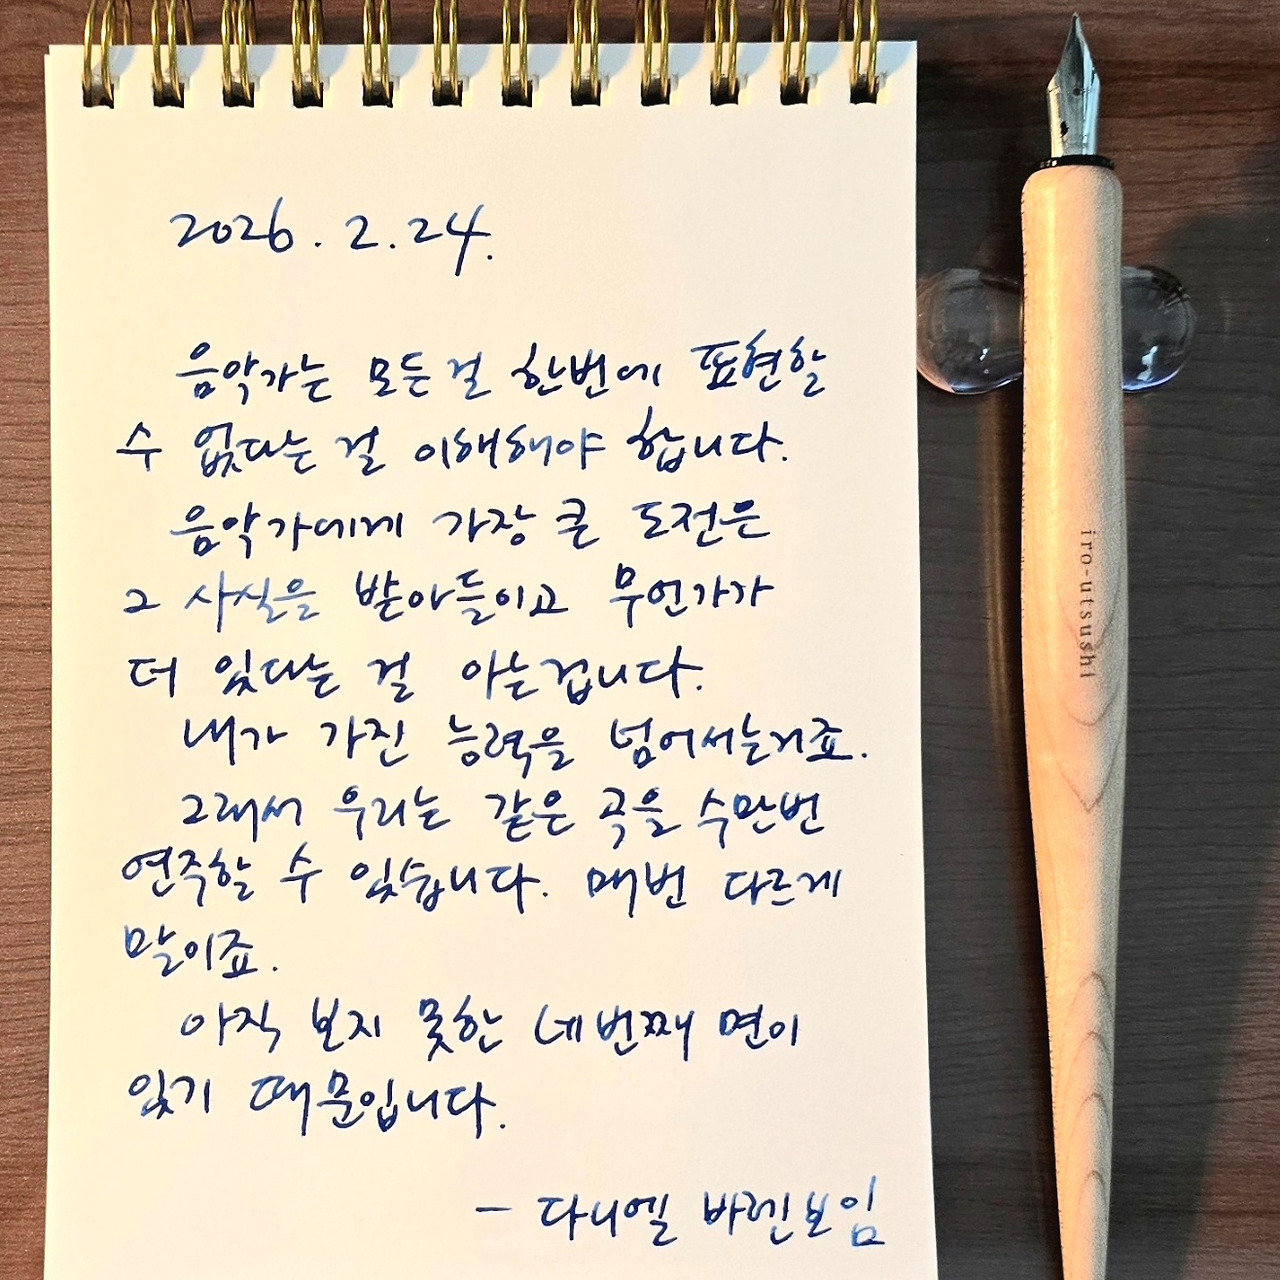 2026. 2. 24.
음악가는 모든걸 한번에 표현할
수 없다는 걸 이해해야 합니다.
음악가에게 가장 큰 도전은
그 사실을 받아들이고 무언가가
더 있다는 걸 아는겁니다.
내가 가진 능력을 넘어서는거죠.
그래서 우리는 같은 곡을 수만번
연주할 수 있습니다. 매번 다르게
말이죠.
아직 보지 못한 네번째 면이
있기 때문입니다.
- 다니엘 바렌보임
iro-utsushi